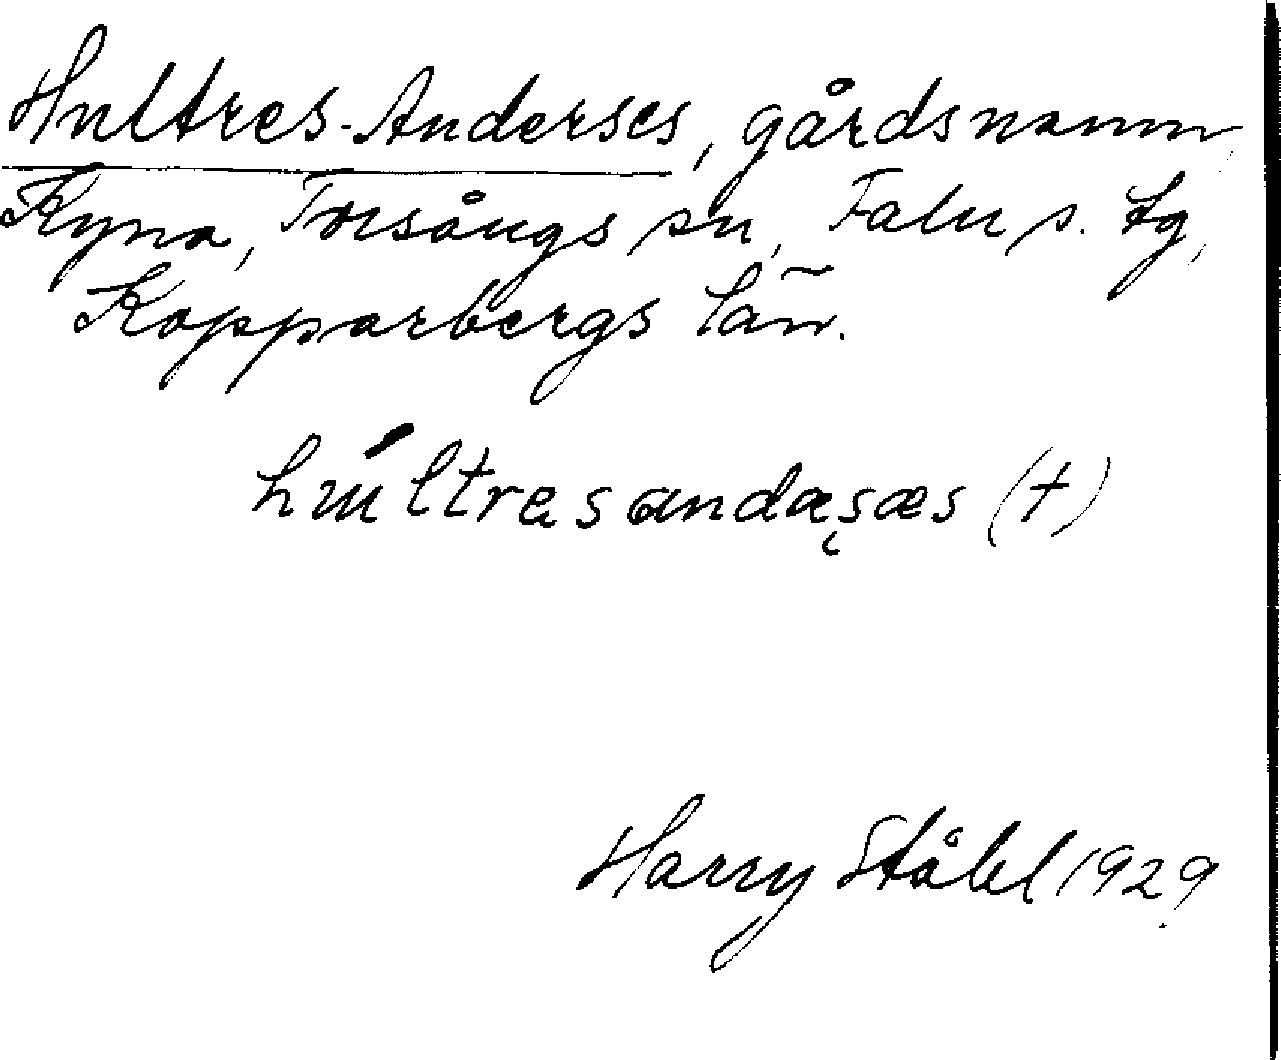 Hultres-Anderses, gårdsnamn,
Kyna, Torsångs sn, Falu s. tg,
Kopparbergs län.
húltrasandasæs (+)
Harry Ståhl 1929.